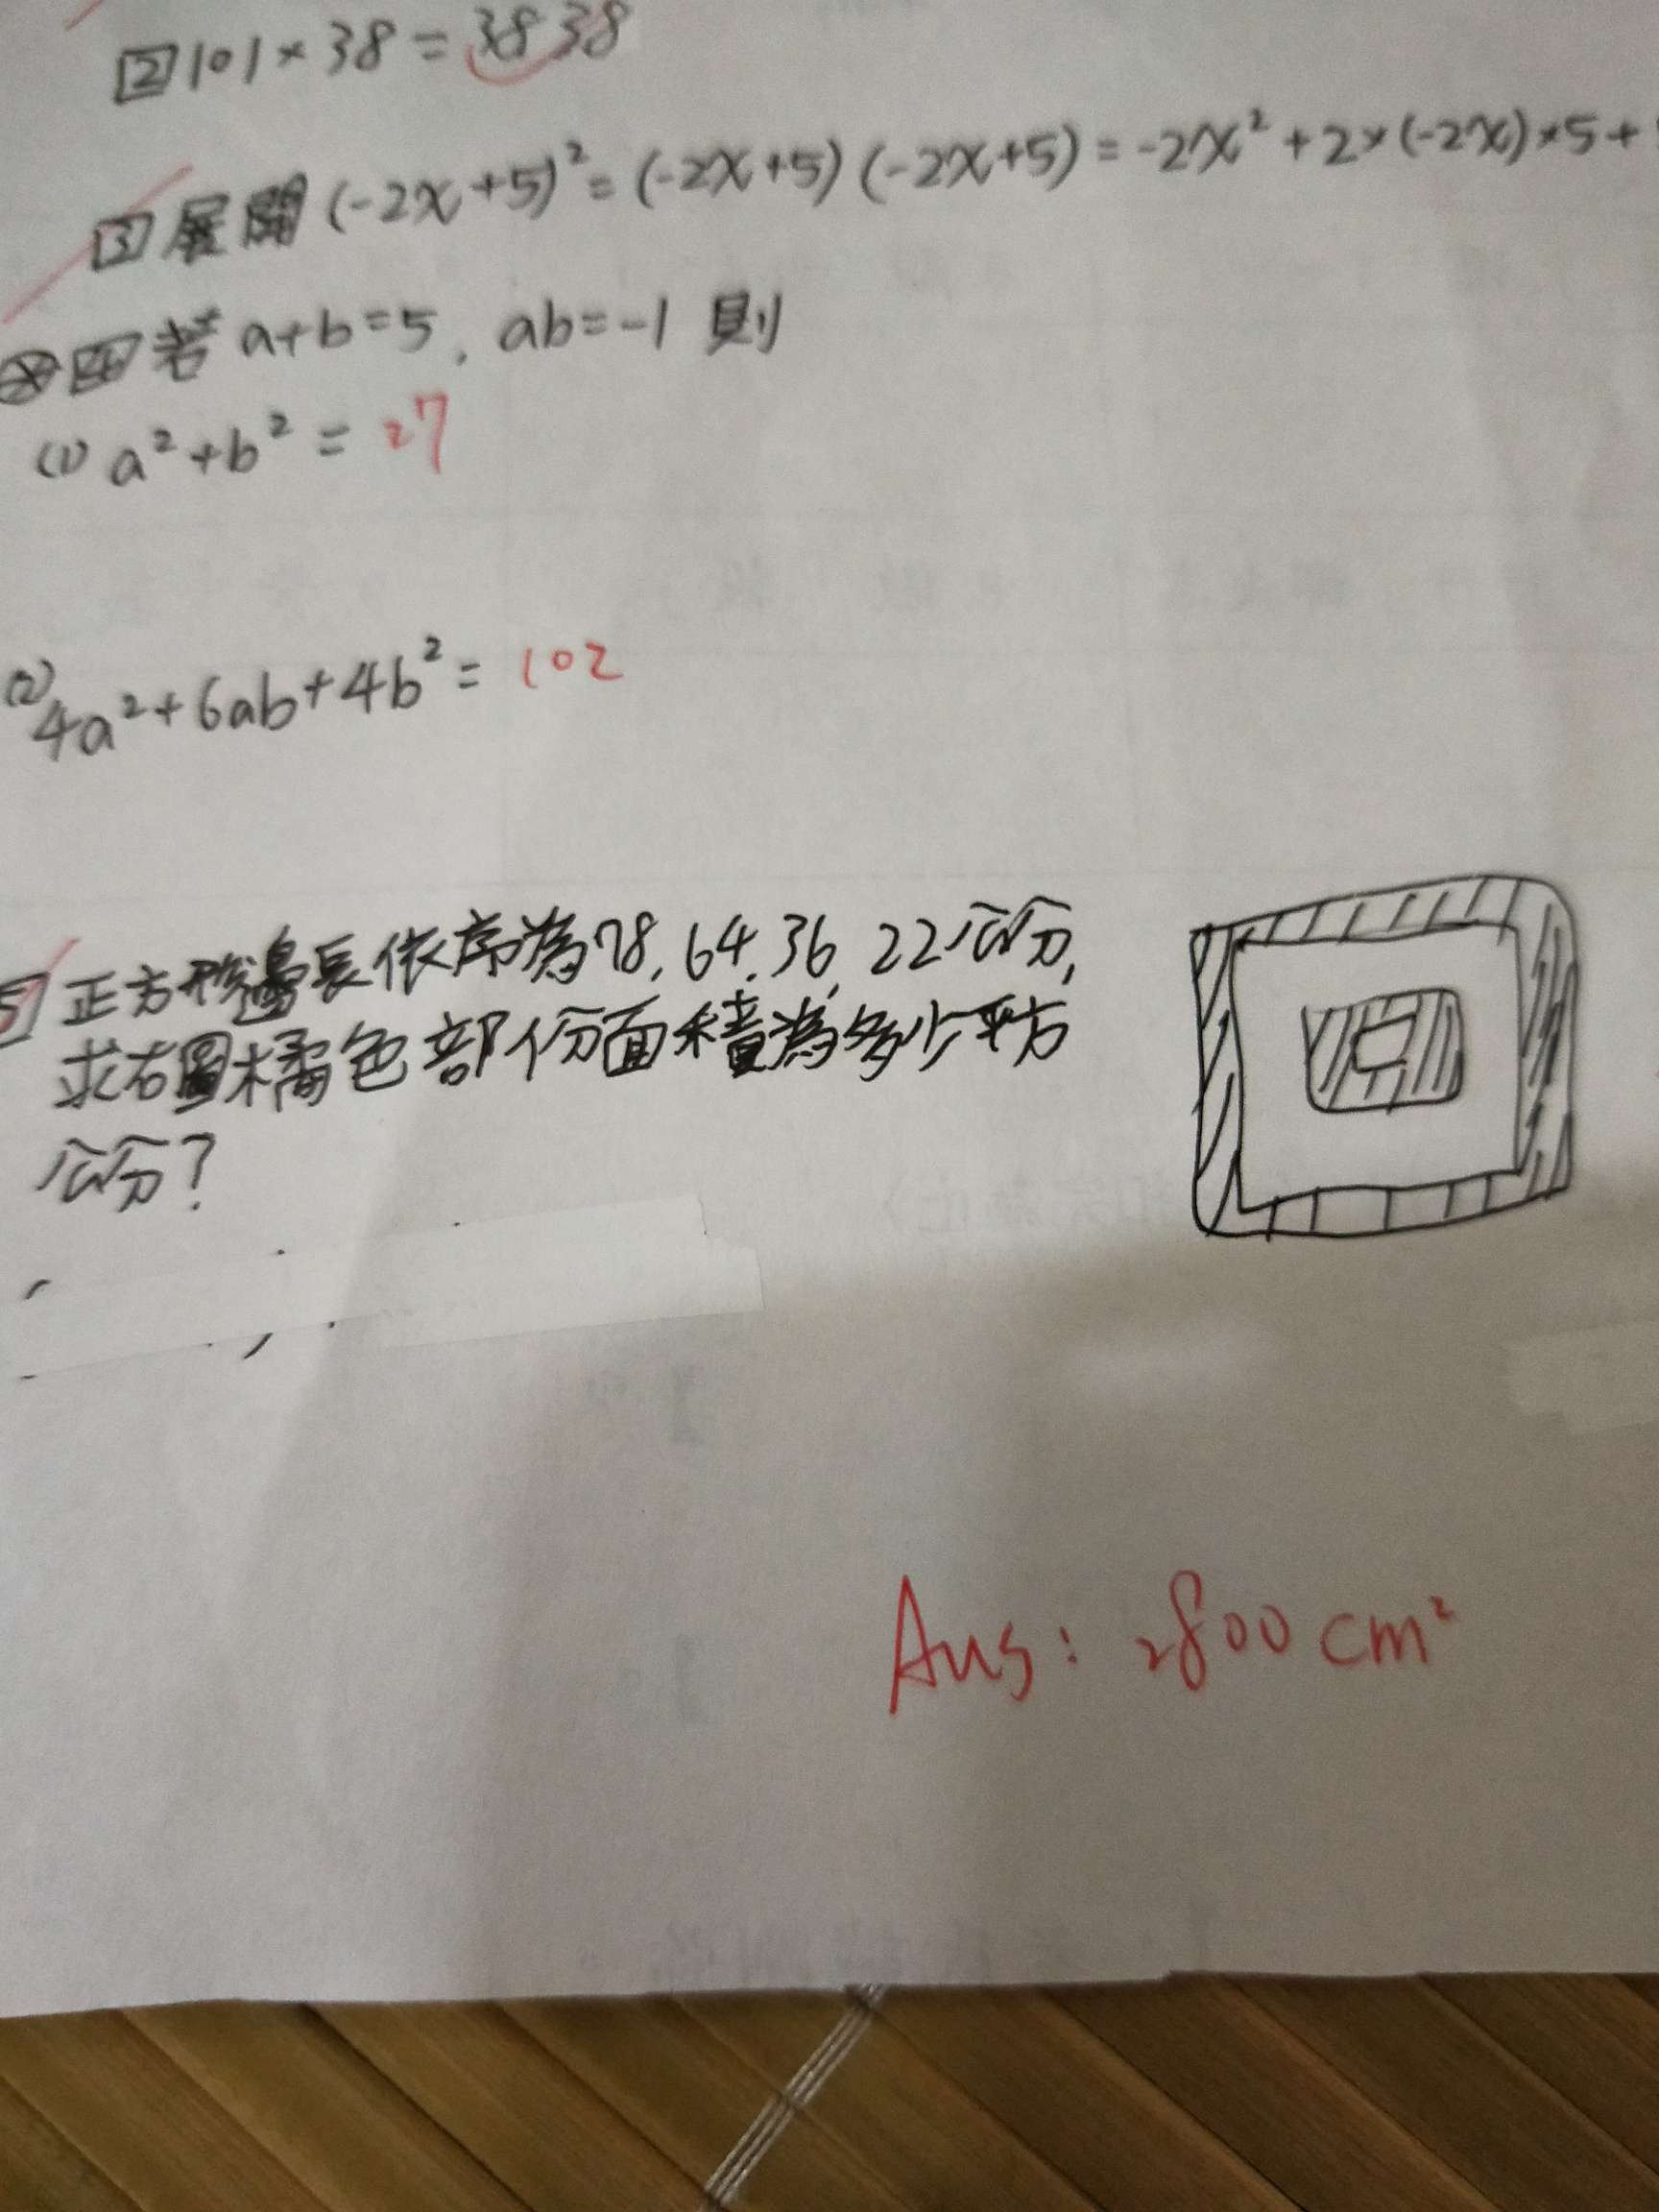 2 101×38=3838
3 展開(-2x+5)²=(-2x+5)(-2x+5)=-2x²+2×(-2x)×5+
4 若 a+b=5, ab=-1 則
(1) a²+b²=27
(2) 4a²+6ab+4b²=102
5 正方形邊長依序為78,64,36,22公分,
求右圖橘色部份面積為多少平方
公分?
Ans: 2800cm²